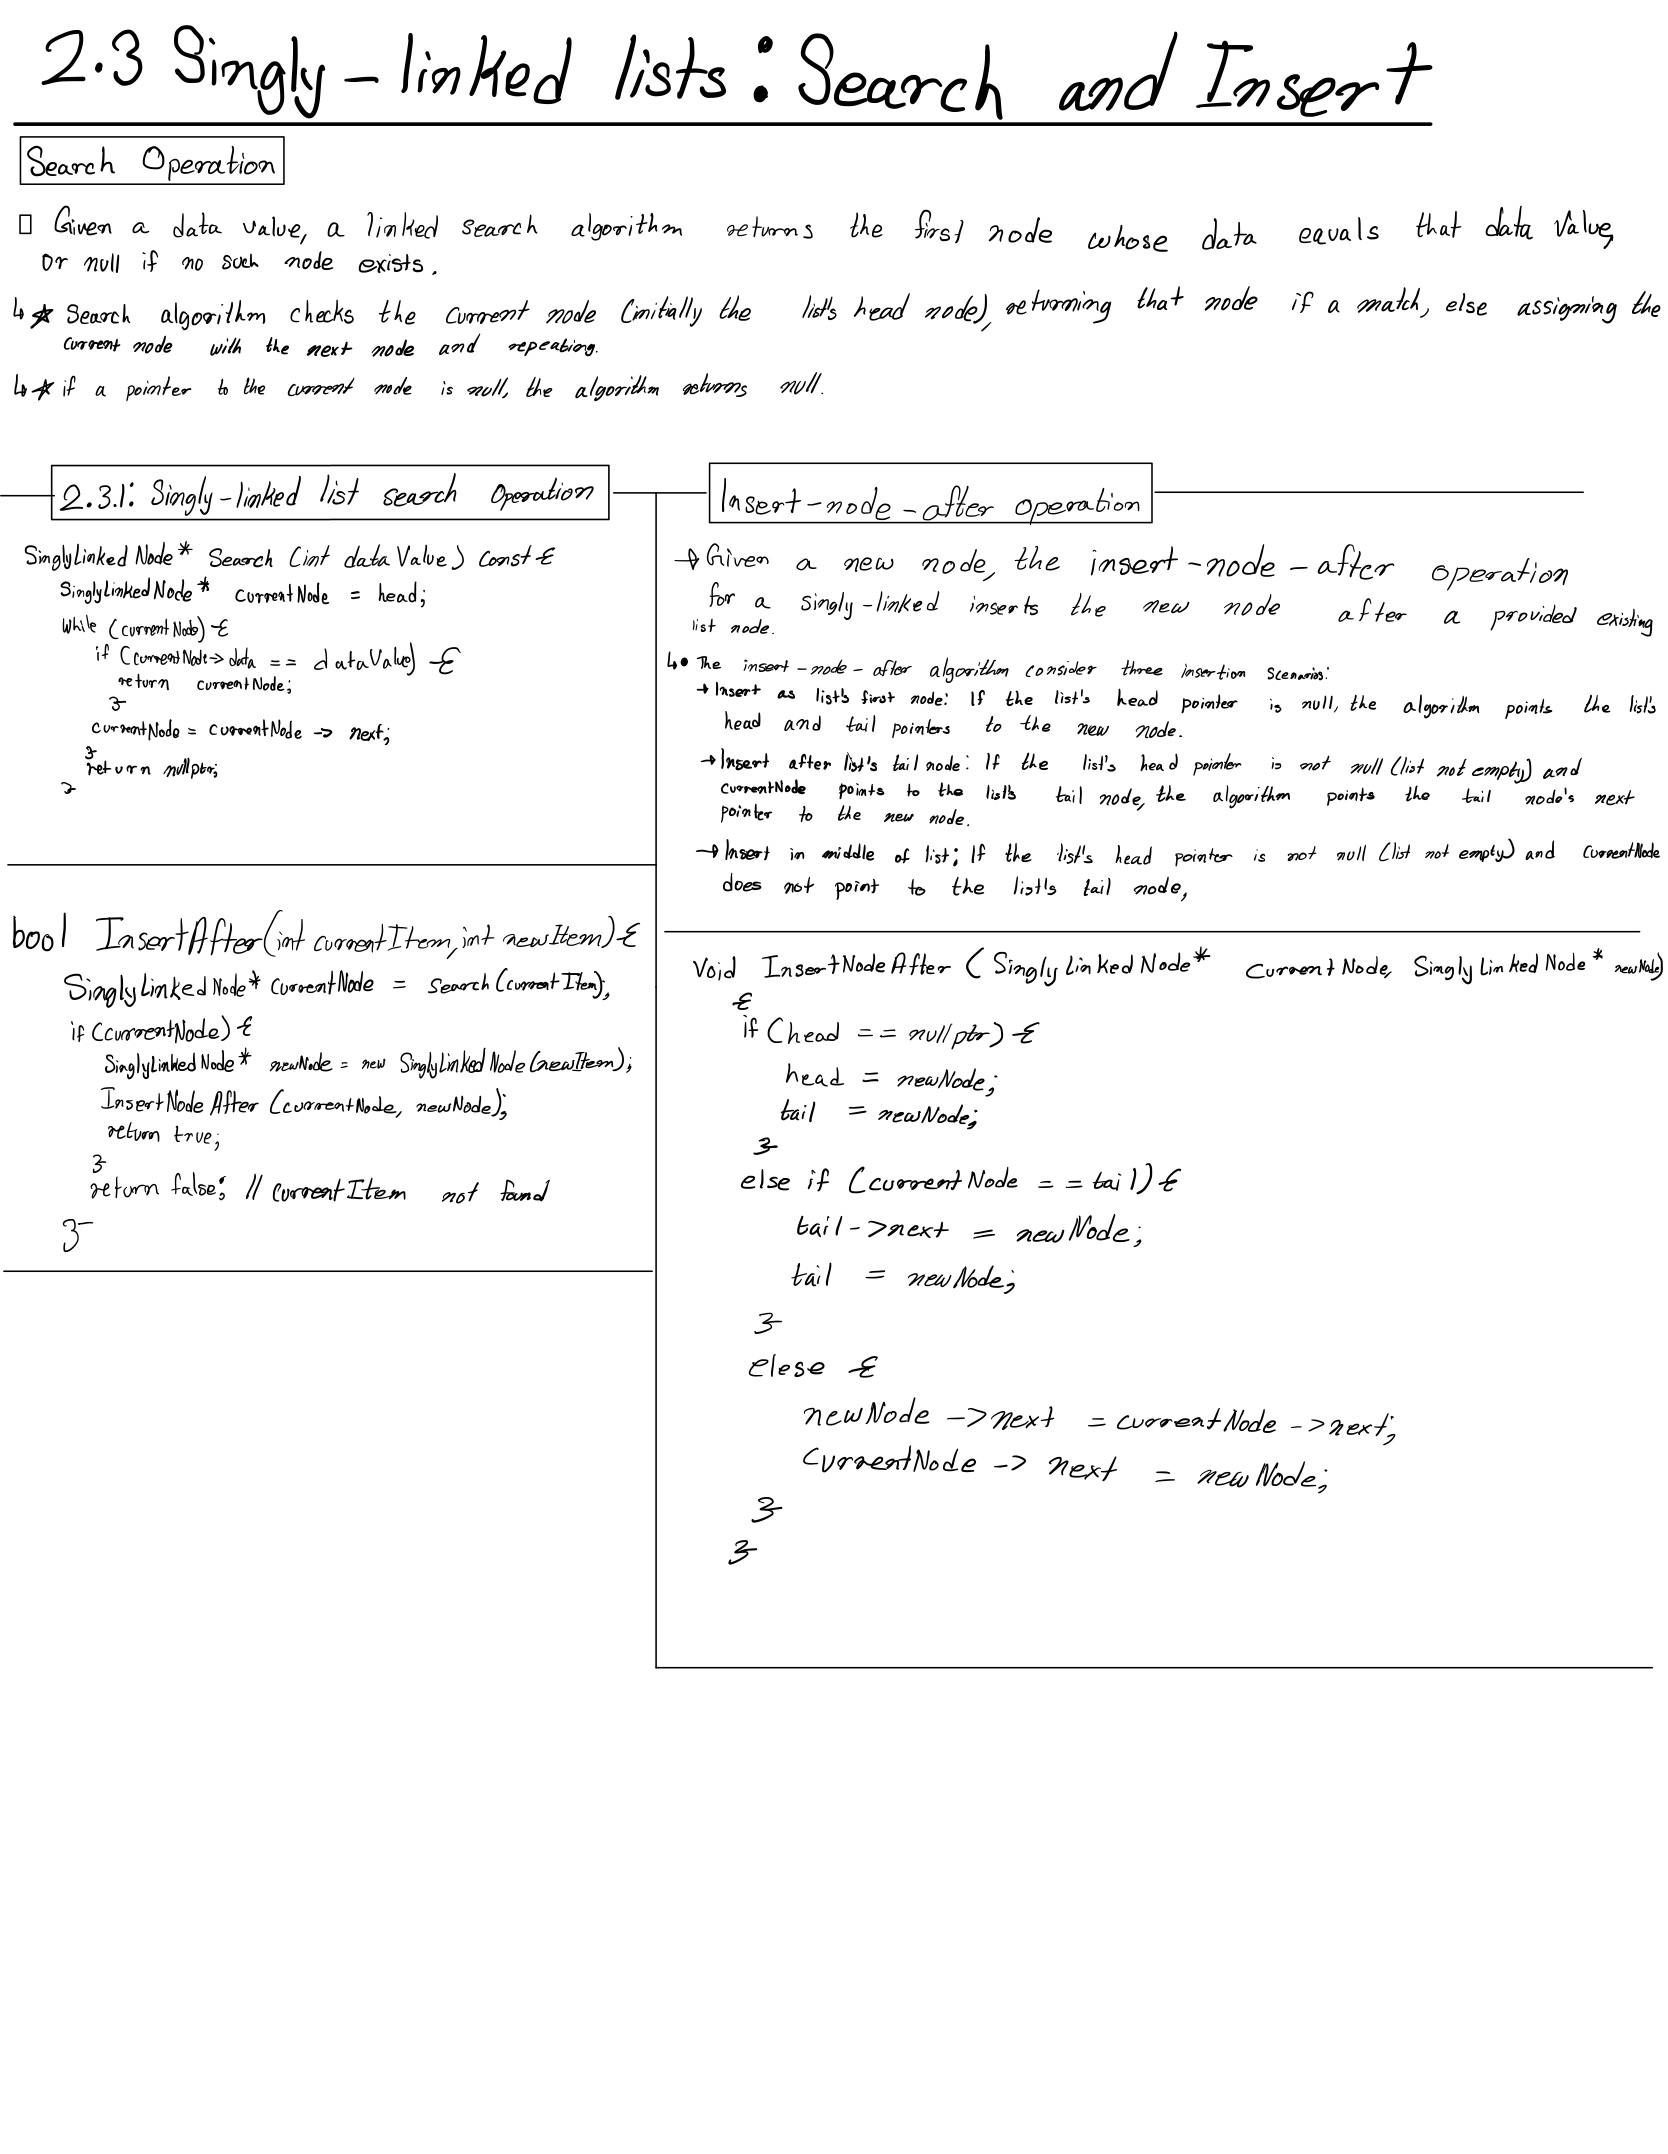 2.3 Singly-linked lists: Search and Insert
Search Operation
Given a data value, a linked search algorithm returns the first node whose data equals that data Value,
or null if no such node exists.
Search algorithm checks the current node (initially the list's head node), returning that node if a match, else assigning the
current node with the next node and repeating.
if a pointer to the current node is null, the algorithm returns null.
2.3.1: Singly-linked list search Operation
SinglyLinkedNode* Search (int dataValue) const {
SinglyLinkedNode* currentNode = head;
while (currentNode) {
if (currentNode->data == dataValue) {
return currentNode;
}
currentNode = currentNode -> next;
}
return nullptr;
}
bool InsertAfter(int currentItem, int newItem) {
SinglyLinkedNode* currentNode = search(currentItem);
if (currentNode) {
SinglyLinkedNode* newNode = new SinglyLinkedNode(newItem);
InsertNodeAfter (currentNode, newNode);
return true;
}
return false; // currentItem not found
}
Insert-node-after operation
→ Given a new node, the insert-node-after operation
for a singly-linked inserts the new node after a provided existing
list node.
• The insert-node-after algorithm consider three insertion scenarios:
→ Insert as list's first node: If the list's head pointer is null, the algorithm points the list's
head and tail pointers to the new node.
→ Insert after list's tail node: If the list's head pointer is not null (list not empty) and
currentNode points to the list's tail node, the algorithm points the tail node's next
pointer to the new node.
→ Insert in middle of list; If the list's head pointer is not null (list not empty) and currentNode
does not point to the list's tail node,
Void InsertNodeAfter (SinglyLinkedNode* currentNode, SinglyLinkedNode* newNode)
{
if (head == nullptr) {
head = newNode;
tail = newNode;
}
else if (currentNode == tail) {
tail->next = newNode;
tail = newNode;
}
elese {
newNode ->next = currentNode ->next;
currentNode -> next = newNode;
}
}